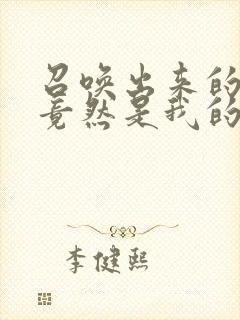 召唤出来的
竟然是我的
李健熙